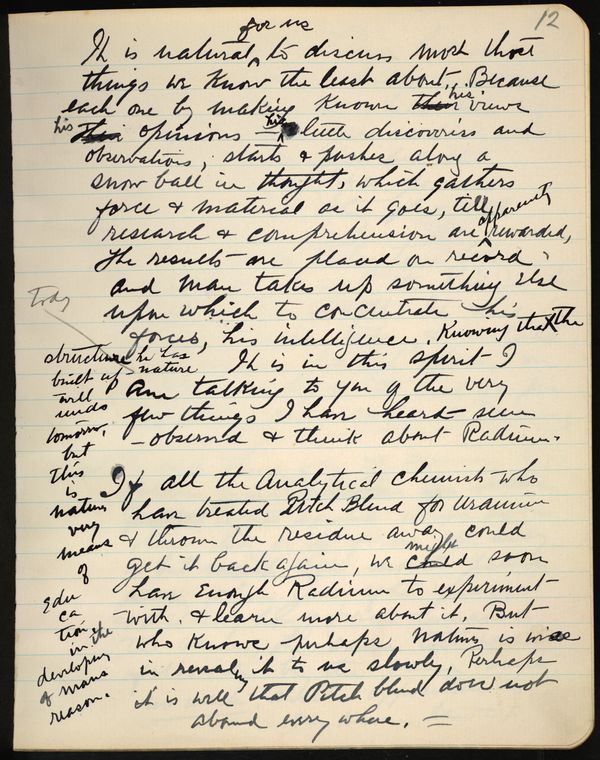 12
for us
It is natural to discuss most those
things we know the least about. Because
each one by making known their his views
his their opinions his little discoveries and
observations, starts & pushes along a
snow ball in thought, which gathers
force & material as it goes, till apparently
research & comprehension are rewarded,
The results are placed on record
and man takes up something else
upon which to concentrate his
forces, his intelligence. Knowing that the
structure he has
built up today
nature
will
undo
tomorrow,
but
this
is
natures
very
means
of
edu
ca
tion &
in the
developing
of mans
reason.
It is in this spirit I
am talking to you of the very
few things I have heard - seen
- observed & think about Radium.
If all the Analytical chemists who
have treated Pitch Blend for Uranium
& thrown the residue away could
get it back again, we could might soon
have enough Radium to experiment
with & learn more about it. But
who knows perhaps Nature is wise
in revealing it to us slowly, Perhaps
it is well that Pitch blend does not
abound everywhere. =